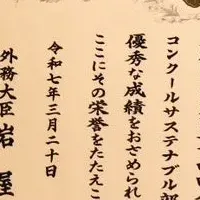 コンクールサステナブル部
優秀な成績をおさめられ
ここにその栄誉をたたえこ
令和七年三月二十日
外務大臣 岩屋